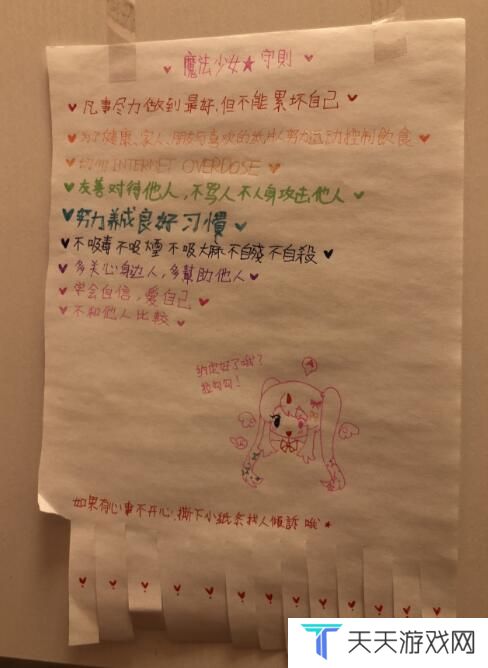 魔法少女★守則
凡事尽力做到最好,但不能累坏自己
为了健康、家人、朋友与喜欢的努力运动控制飲食
INTERNET OVERDOSE
友善对待他人,不骂人不人身攻击他人
努力養成良好习慣
不吸毒不吸煙不吸大麻不自殘不自殺
多关心身边人,多幫助他人
学会自信,愛自己
不和他人比較
約定好了哦?
拉勾勾!
如果有心事不开心,撕下小紙条找人傾訴哦★
天天游戏网